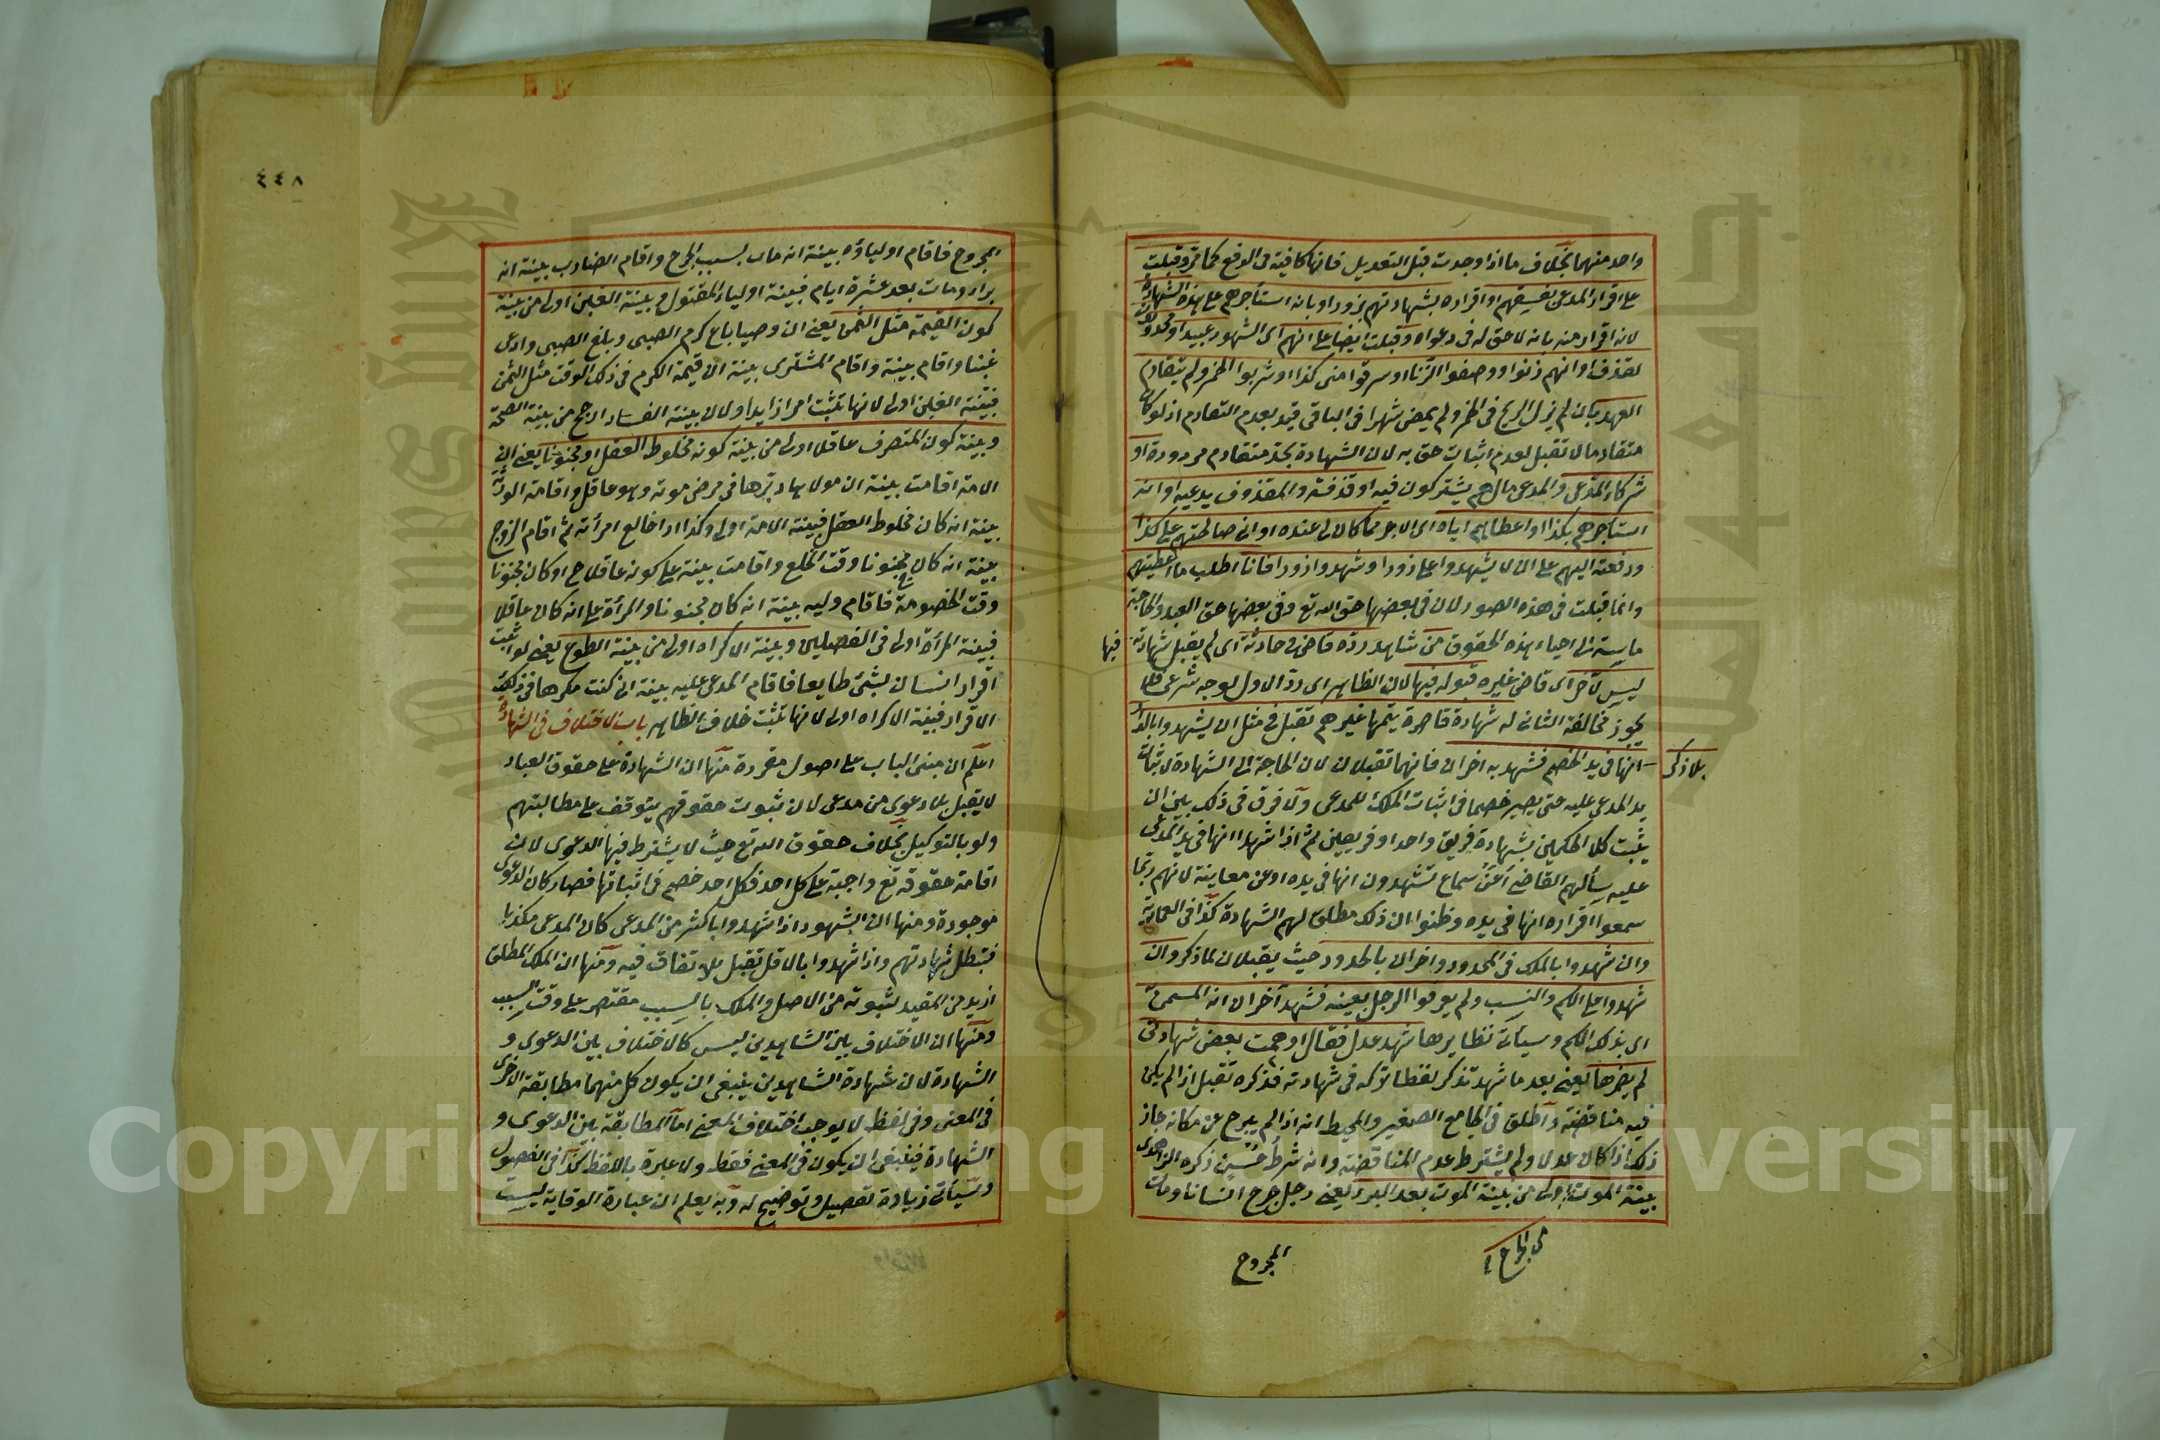 واحد منهما بخلاف ما اذا وجدت قبل التعديل فانها كافية فى الدفع كما مر وقبلت
على اقرار المدعى بفسقهم او اقراره بشهادتهم بزور او بانه استأجرهم على هذه الشهادة
لانه اقرار منه بانه لا حق له فى دعواه وقبلت ايضا على انهم اى الشهود عبيد او محدودون
بقذف او انهم زنوا ووصفوا الزنا او سرقوا منى كذا او شربوا الخمر ولم يتقادم
العهد بان لم يزل الريح فى الخمر ولم يمض شهر فى الباقى قيد بعدم التقادم اذ لو كان
متقادما لا تقبل لعدم اثبات حق به لان الشهادة بحد متقادم مردودة او
شركاء المدعى والمدعى مال هم يشتركون فيه او قذفته والمقذوف يدعيه او انه
استأجرهم بكذا او اعطاهم اياه اى الاجر مما كان لى عنده او انى صالحتهم على كذا
ودفعته اليهم على ان لا يشهدوا على زورا وشهدوا زورا فانا اطلب ما اعطيتهم
وانما قبلت فى هذه الصور لان فى بعضها حق الله تع وفى بعضها حق العبد والحاجة
ماسة الى احياء هذه الحقوق من شاهد رده قاض فى حادثة اى لم يقبل شهادته فيها
ليس لآخر اى قاض غيره قبوله فيها لان الظاهر اى رد الاول لوجه شرعى فلا
يجوز مخالفة الثانى له شهادة قاصرة يتمها غيرهم تقبل فى مثل ان يشهدوا بالدار
بلا ذكر انها فى يد الخصم فشهد به اخران فانهما تقبلان لان الحاجة الى الشهادة لاثبات
يد المدعى عليه حتى يصير خصما فى اثبات الملك للمدعى ولا فرق فى ذلك بين ان
يثبت كلا الحكمين بشهادة فريق واحد او فريقين ثم اذا شهدا انها فى يد المدعى
عليه سألهم القاضى أعن سماع تشهدون انها فى يده او عن معاينة لانهم ربما
سمعوا اقراره انها فى يده وظنوا ان ذلك مطلق لهم الشهادة كذا فى العمادية
وان شهدوا بالملك فى المحدود واخران بالحدود حيث يقبلان لما ذكر وان
شهدوا على الاسم والنسب ولم يعرفوا الرجل بعينه فشهد آخران انه المسمى به
اى بذلك الاسم وسيأتى نظايرها شهد عدل فقال اوهمت بعض شهادتى
لم يضرها يعنى بعد ما شهد تذكر لفظا تركه فى شهادته فذكره تقبل اذا لم يكن
فيه مناقضة واطلق فى الجامع الصغير والمحيط انه اذا لم يبرح عن مكانه جاز
ذلك اذا كان عدلا ولم يشترط عدم المناقضة وانه شرط حسن ذكره الزاهدى
بينة الموت من الجراح اولى من بينة الموت بعد البرء يعنى رجل جرح انسانا ومات
المجروح
المجروح فاقام اولياؤه بينة انه مات بسبب الجرح واقام الضارب بينة انه
برأ ومات بعد عشرة ايام فبينة اولياء المقتول و بينة الغبن اولى من بينة
كون القيمة مثل الثمن يعنى ان وصيا باع كرم الصبى وبلغ الصبى وادعى
غبنا واقام بينة واقام المشترى بينة ان قيمة الكرم فى ذلك الوقت مثل الثمن
فبينة الغبن اولى لانها تثبت امرا زايدا ولان بينة الفساد ارجح من بينة الصحة
وبينة كون المتصرف عاقلا اولى من بينة كونه مخلوط العقل او مجنونا يعنى ان
الامة اقامت بينة ان مولاها دبرها فى مرض موته وهو عاقل واقامة الورثة
بينة انه كان مخلوط العقل فبينة الامة اولى وكذا اذا خالع امرأته ثم اقام الزوج
بينة انه كان مجنونا وقت الخلع واقامت بينة على كونه عاقلا ح او كان مجنونا
وقت الخصومة فاقام وليه بينة انه كان مجنونا والمرأة على انه كان عاقلا
فبينة المرأة اولى فى الفصلين وبينة الاكراه اولى من بينة الطوع يعنى لو اثبت
اقرار انسان بشئ طايعا فاقام المدعى عليه بينة انى كنت مكرها فى ذلك
الاقرار فبينة الاكراه اولى لانها تثبت خلاف الظاهر باب الاختلاف فى الشهادة
اعلم ان مبنى الباب على اصول مقررة منها ان الشهادة على حقوق العباد
لا يقبل بلا دعوى من مدعى لان ثبوت حقوقهم يتوقف على مطالبتهم
ولو بالتوكيل بخلاف حقوق الله تع حيث لا يشترط فيها الدعوى لان
اقامة حقوقه تع واجبة على كل احد فكل احد خصم فى اثباتها فصار كان الدعوى
موجودة ومنها ان الشهود اذا شهدوا باكثر من المدعى كان المدعى مكذبا
فتبطل شهادتهم واذا شهدوا بالاقل تقبل بلا تفاق فيه ومنها ان الملك المطلق
ازيد من المقيد لثبوته من الاصل والملك بالسبب مقتصر على وقت السبب
ومنها ان الاختلاف بين الشاهدين ليس كالاختلاف بين الدعوى و
الشهادة لان شهادة الشاهدين ينبغى ان يكون كل منهما مطابقة الاخرى
فى المعنى وفى لفظ لا يوجب اختلاف المعنى اما المطابقة بين الدعوى و
الشهادة فينبغى ان يكون فى المعنى فقط ولا عبرة باللفظ كذا فى الفصول
وسيأتى زيادة تفصيل وتوضيح له وبه يعلم ان عبارة الوقاية ليست
٤٤٨
Copyright © King Saud University